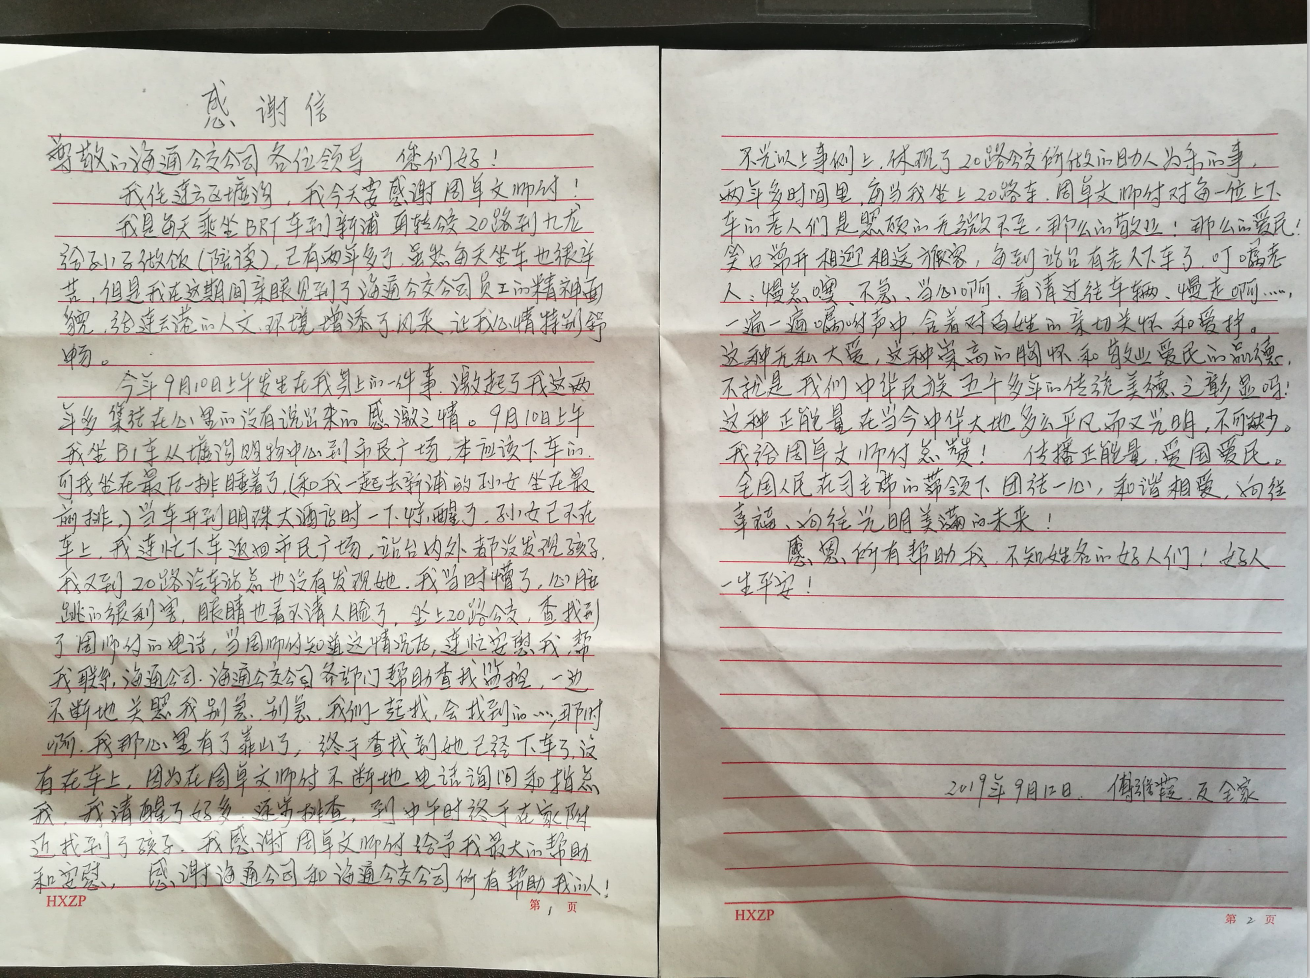 感谢信
尊敬的海通公交公司各位领导 您们好！
我住连云区墟沟，我今天要感谢周卓文师付！
我是每天乘坐BRT车到新浦再转公交20路到九龙
给孙子做饭（陪读），已有两年多了，虽然每天坐车也很辛
苦，但是我在这期间亲眼见到了海通公交公司员工的精神面
貌，给连云港的人文、环境增添了风采，让我心情特别舒
畅。
今年9月10日上午发生在我身上的一件事，激起了我这两
年多集结在心里的没有说出来的感激之情。9月10日上午
我坐B1车从墟沟购物中心到市民广场，本应该下车的，
可我坐在最后一排睡着了，（和我一起去新浦的孙女坐在最
前排，）当车开到明珠大酒店时一下惊醒了，孙女已不在
车上，我连忙下车返回市民广场，站台内外都没发现孩子，
我又到20路汽车站点也没有发现她，我当时懵了，心脏
跳的很利害，眼睛也看不清人脸了，坐上20路公交，查找到
了周师付的电话，当周师付知道这情况后，连忙安慰我，帮
我联系，海通公司、海通公交公司各部门帮助查找监控，一边
不断地关照我别急、别急，我们一起找，会找到的……，那时
啊，我那心里有了靠山了，终于查找到她已经下车了，没
有在车上，因为在周卓文师付不断地电话询问和指点
我，我清醒了好多，逐步排查，到中午时终于在家附
近找到了孩子，我感谢周卓文师付给予我最大的帮助
和安慰，感谢海通公司和海通公交公司所有帮助我的人！
HXZP
第 1 页
不光以上事例上，体现了20路公交所做的助人为乐的事，
两年多时间里，每当我坐上20路车，周卓文师付对每一位上下
车的老人们是照顾的无微不至，那么的敬业！那么的爱民！
笑口常开相迎相送乘客，每到站台有老人下车了，叮嘱老
人：慢点噢、不急、当心啊，看清过往车辆、慢走啊……，
一遍一遍嘱咐声中，含着对百姓的亲切关怀和爱护。
这种无私大爱，这种崇高的胸怀和敬业爱民的品德，
不就是我们中华民族五千多年的传统美德之彰显吗！
这种正能量在当今中华大地多么平凡而又光明，不可缺少。
我给周卓文师付点赞！ 传播正能量，爱国爱民。
全国人民在习主席的带领下团结一心，和谐相爱，向往
幸福、向往光明美满的未来！
感恩所有帮助我、不知姓名的好人们！好人
一生平安！
2019年9月12日 傅 霞及全家
HXZP
第 2 页